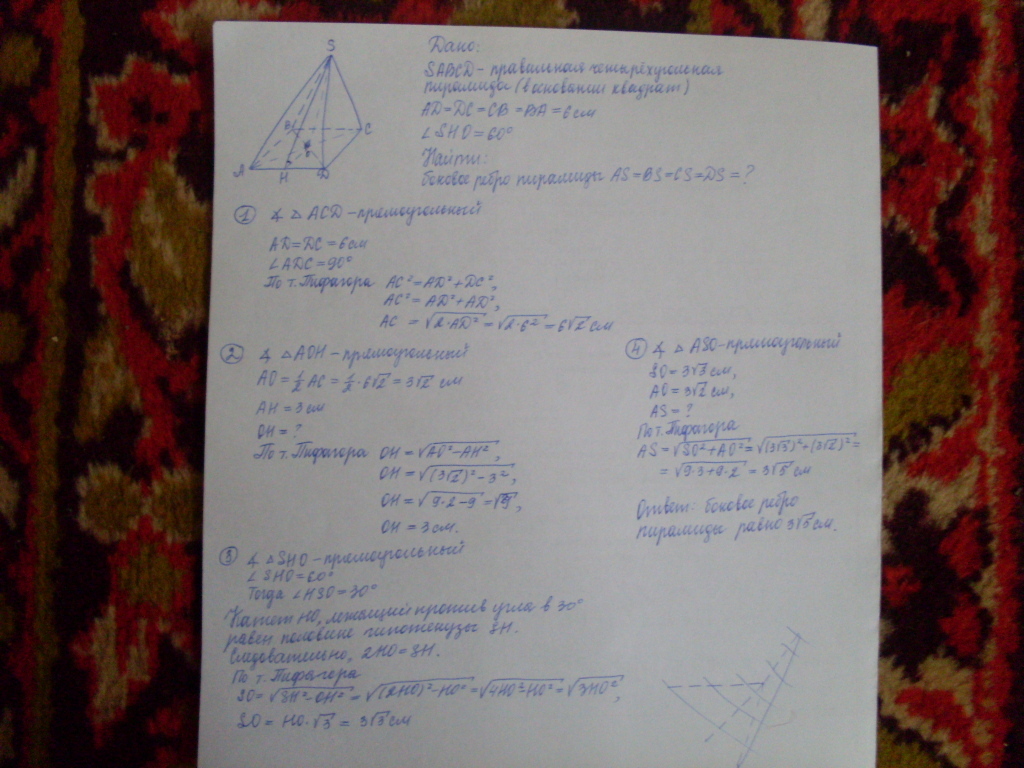 S
B
C
A
H
D
Дано:
SABCD - правильная четырёхугольная
пирамида (в основании квадрат)
AD=DC=CB=BA=6см
∠SHO=60°
Найти:
боковое ребро пирамиды AS=BS=CS=DS=?
① ∡ △ ACD - прямоугольный
AD=DC=6см
∠ADC=90°
По т. Пифагора AC²=AD²+DC²,
AC²=AD²+AD²,
AC = √2·AD² = √2·6² = 6√2 см
② ∡ △AOH - прямоугольный
AO = 1/2 AC = 1/2 · 6√2 = 3√2 см
AH = 3 см
OH = ?
По т. Пифагора OH = √AO²-AH²,
OH = √(3√2)²-3²,
OH = √9·2-9 = √9,
OH = 3 см.
③ ∡ △SHO - прямоугольный
∠SHO=60°
Тогда ∠HSO=30°
Катет HO, лежащий против угла в 30°
равен половине гипотенузы SH.
Следовательно, 2HO=SH.
По т. Пифагора
SO = √SH²-OH² = √(2HO)²-HO² = √4HO²-HO² = √3HO²,
SO = HO·√3 = 3√3 см
④ ∡ △ ASO - прямоугольный
SO = 3√3 см,
AO = 3√2 см,
AS = ?
По т. Пифагора
AS = √SO²+AO² = √(3√3)²+(3√2)² =
= √9·3+9·2 = 3√5 см
Ответ: боковое ребро
пирамиды равно 3√5 см.